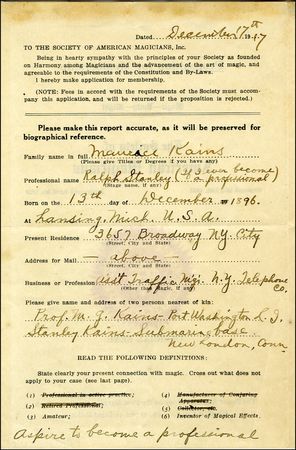 Dated December 17th 1917
TO THE SOCIETY OF AMERICAN MAGICIANS, Inc.
Being in hearty sympathy with the principles of your Society as founded
on Harmony among Magicians and the advancement of the art of magic, and
agreeable to the requirements of the Constitution and By-Laws.
I hereby make application for membership,
(NOTE: Fees in accord with the requirements of the Society must accom-
pany this application, and will be returned if the proposition is rejected.)
Please make this report accurate, as it will be preserved for
biographical reference.
Family name in full Maurice Kains
(Please give Titles or Degrees if you have any)
Professional name Ralph Stanley (If I ever become a professional
(Stage name, if any)
Born on the 13th day of December 1896.
At Lansing, Mich. U.S.A.
Present Residence 3657 Broadway N.Y. City
(Street, City and State)
Address for Mail — above —
(Street, City and State)
Business or Profession Asst Traffic Mgr. N.Y. Telephone Co.
(Other than Magic, if any)
Please give name and address of two persons nearest of kin:
Prof. M. G. Kains - Port Washington L. I.
Stanley Kains - Submarine base
New London, Conn
READ THE FOLLOWING DEFINITIONS:
State clearly your connection with magic. Cross out what does not
apply to your case (see last page).
(1) Professional in active practice;
(2) Retired Professional;
(3) Amateur;
(4) Manufacturer of Conjuring Apparatus;
(5) Collector, etc.
(6) Inventor of Magical Effects.
Aspire to become a professional